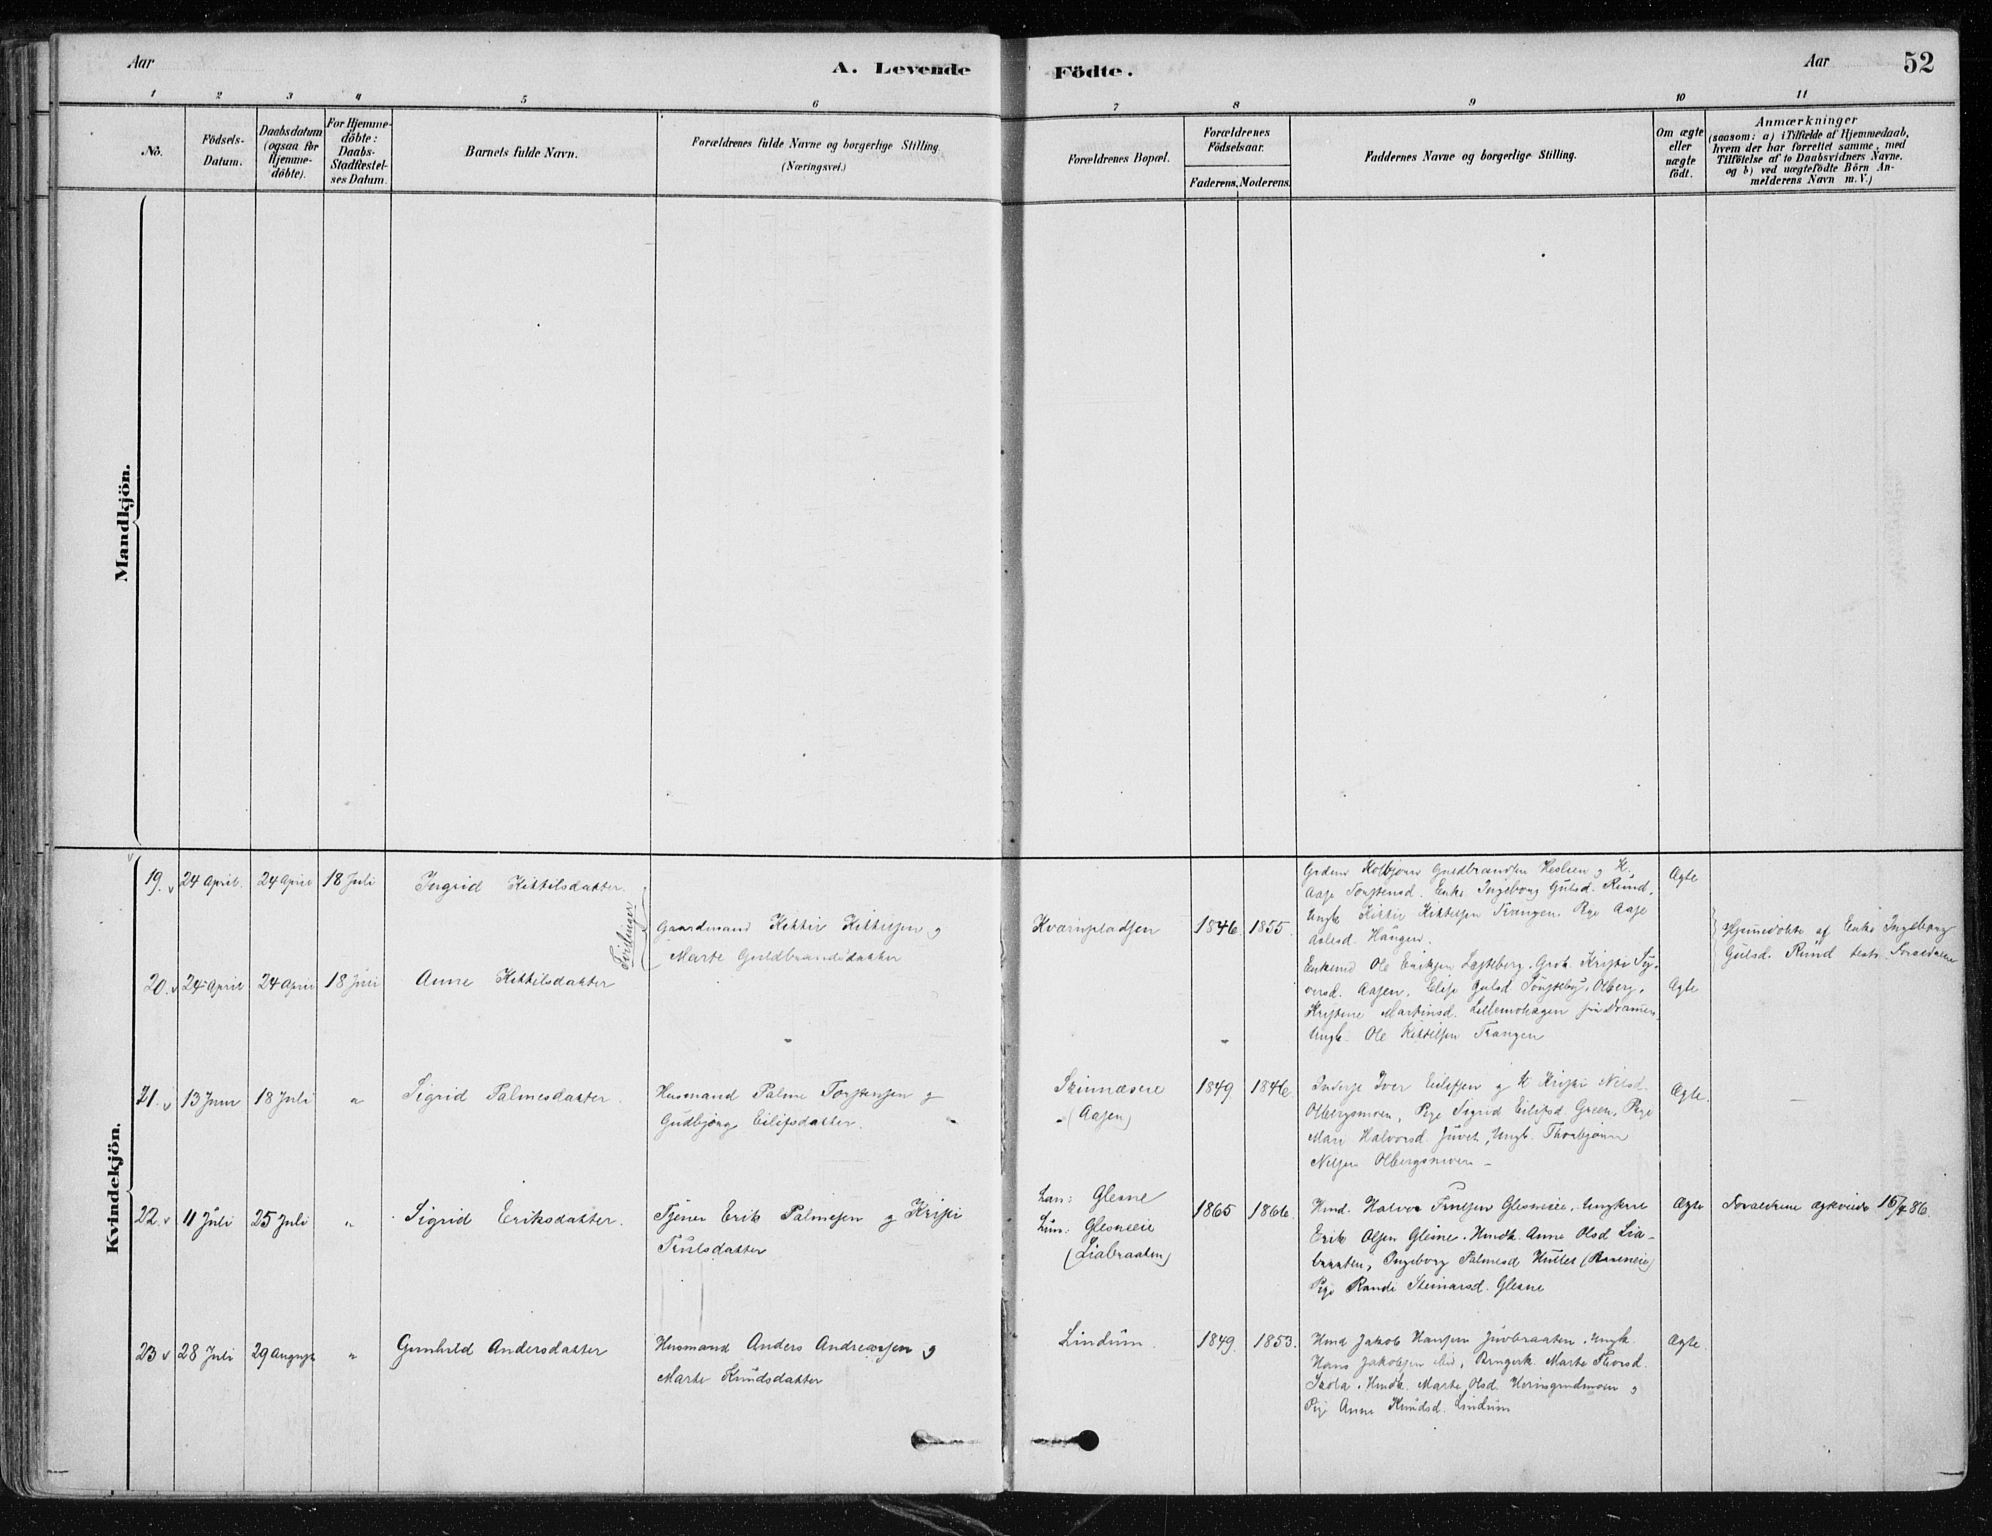 Aar
A. Levende
Födte.
Aar
52
1
2
3
4
5
6
7
8
9
10
11
No.
Födsels-
Datum.
Daabsdatum
(ogsaa för
Hjemme-
döbte).
For Hjemme-
döbte:
Daabs-
Stadfæstel-
ses Datum.
Barnets fulde Navn.
Forældrenes fulde Navne og borgerlige Stilling.
(Næringsvei.)
Forældrenes Bopæl.
Forældrenes
Födselsaar.
Faderens.
Moderens.
Faddernes Navne og borgerlige Stilling.
Om ægte
eller
uægte
födt.
Anmærkninger
(saasom: a) i Tilfælde af Hjemmedaab,
hvem der har forrettet samme, med
Tilföielse af to Daabsvidners Navne.
og b) ved uægtefödte Börn An-
melderens Navn m. V.)
Mandkjön.
Kvindekjön.
19.
24 April.
24 April
18 Juli
Ingrid Kittilsdatter.
Tvillinger
Gaardmand Kittil Kittilsen og
Marte Guldbrandsdatter
Kværnpladsen
1846
1855.
Aase Torstensd. Enke Ingeborg Gulsd. Rund,
Ungk. Kittil Kittilsen Trangen. Pige Aase
Ægte
Hjemmedøbte af Enke Ingeborg
Gulsd. Rund
Forældrene
20.
24 April
24 April
18 Juli
Anne Kittilsdatter
Enkemd Ole Eriksen
Kristine Martinsd. Lillemohagen fra Drammen,
Ungk. Ole Kittilsen Trangen
Ægte
21.
13 Juni
18 Juli
"
Sigrid Palmesdatter.
Husmand Palme Torstensen og
Gudbjørg Eilifsdatter.
(Aasen)
1849
1846.
Inderst Iver Eilifsen og K. Kristi Nilsd.
Olbergsmoen, Pige Sigrid Eilifsd. Green, Pige
Mari Halvorsd. Juvet, Ungk. Thorbjørn
Nilsen Olbergsmoen
Ægte.
—
22.
11 Juli
25 Juli
"
Sigrid Eriksdatter.
Tjener Erik Palmesen og Kristi
Trulsdatter
Han: Glesne
Hun: Glesneeie
(Liabraaten)
1865
1866.
Hmd. Halvor Trulsen Glesneeie, Ungkarl
Erik Olsen Glesne. Hmdk. Anne Olsd Lia-
braaten, Ingeborg Palmesd
Pige Randi Steinarsd. Glesne
Ægte
Forældrene ægteviede
23
28 Juli
29 August
"
Gunhild Andersdatter
Husmand Anders Andreassen og
Marte Knudsdatter
Lindum.
1849.
1853.
Hmd Jakob Hansen Juvbraaten. Ungk.
Hans Jakobsen ibid, Brugerk. Marte Thorsd.
Skola. Hmdk. Marte Olsd.
Pige Anne Knudsd. Lindum
Ægte.